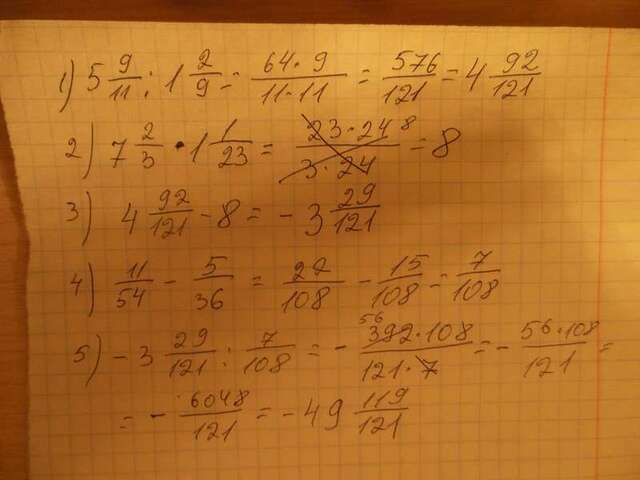 1) 5 9/11 : 1 2/9 = 64·9/11·11 = 576/121 = 4 92/121
2) 7 2/3 · 1 1/23 = 23·24 8/3·24 = 8
3) 4 92/121 - 8 = -3 29/121
4) 11/54 - 5/36 = 22/108 - 15/108 = 7/108
5) -3 29/121 : 7/108 = - 56 392·108/121·7 = - 56·108/121 =
= - 6048/121 = -49 119/121